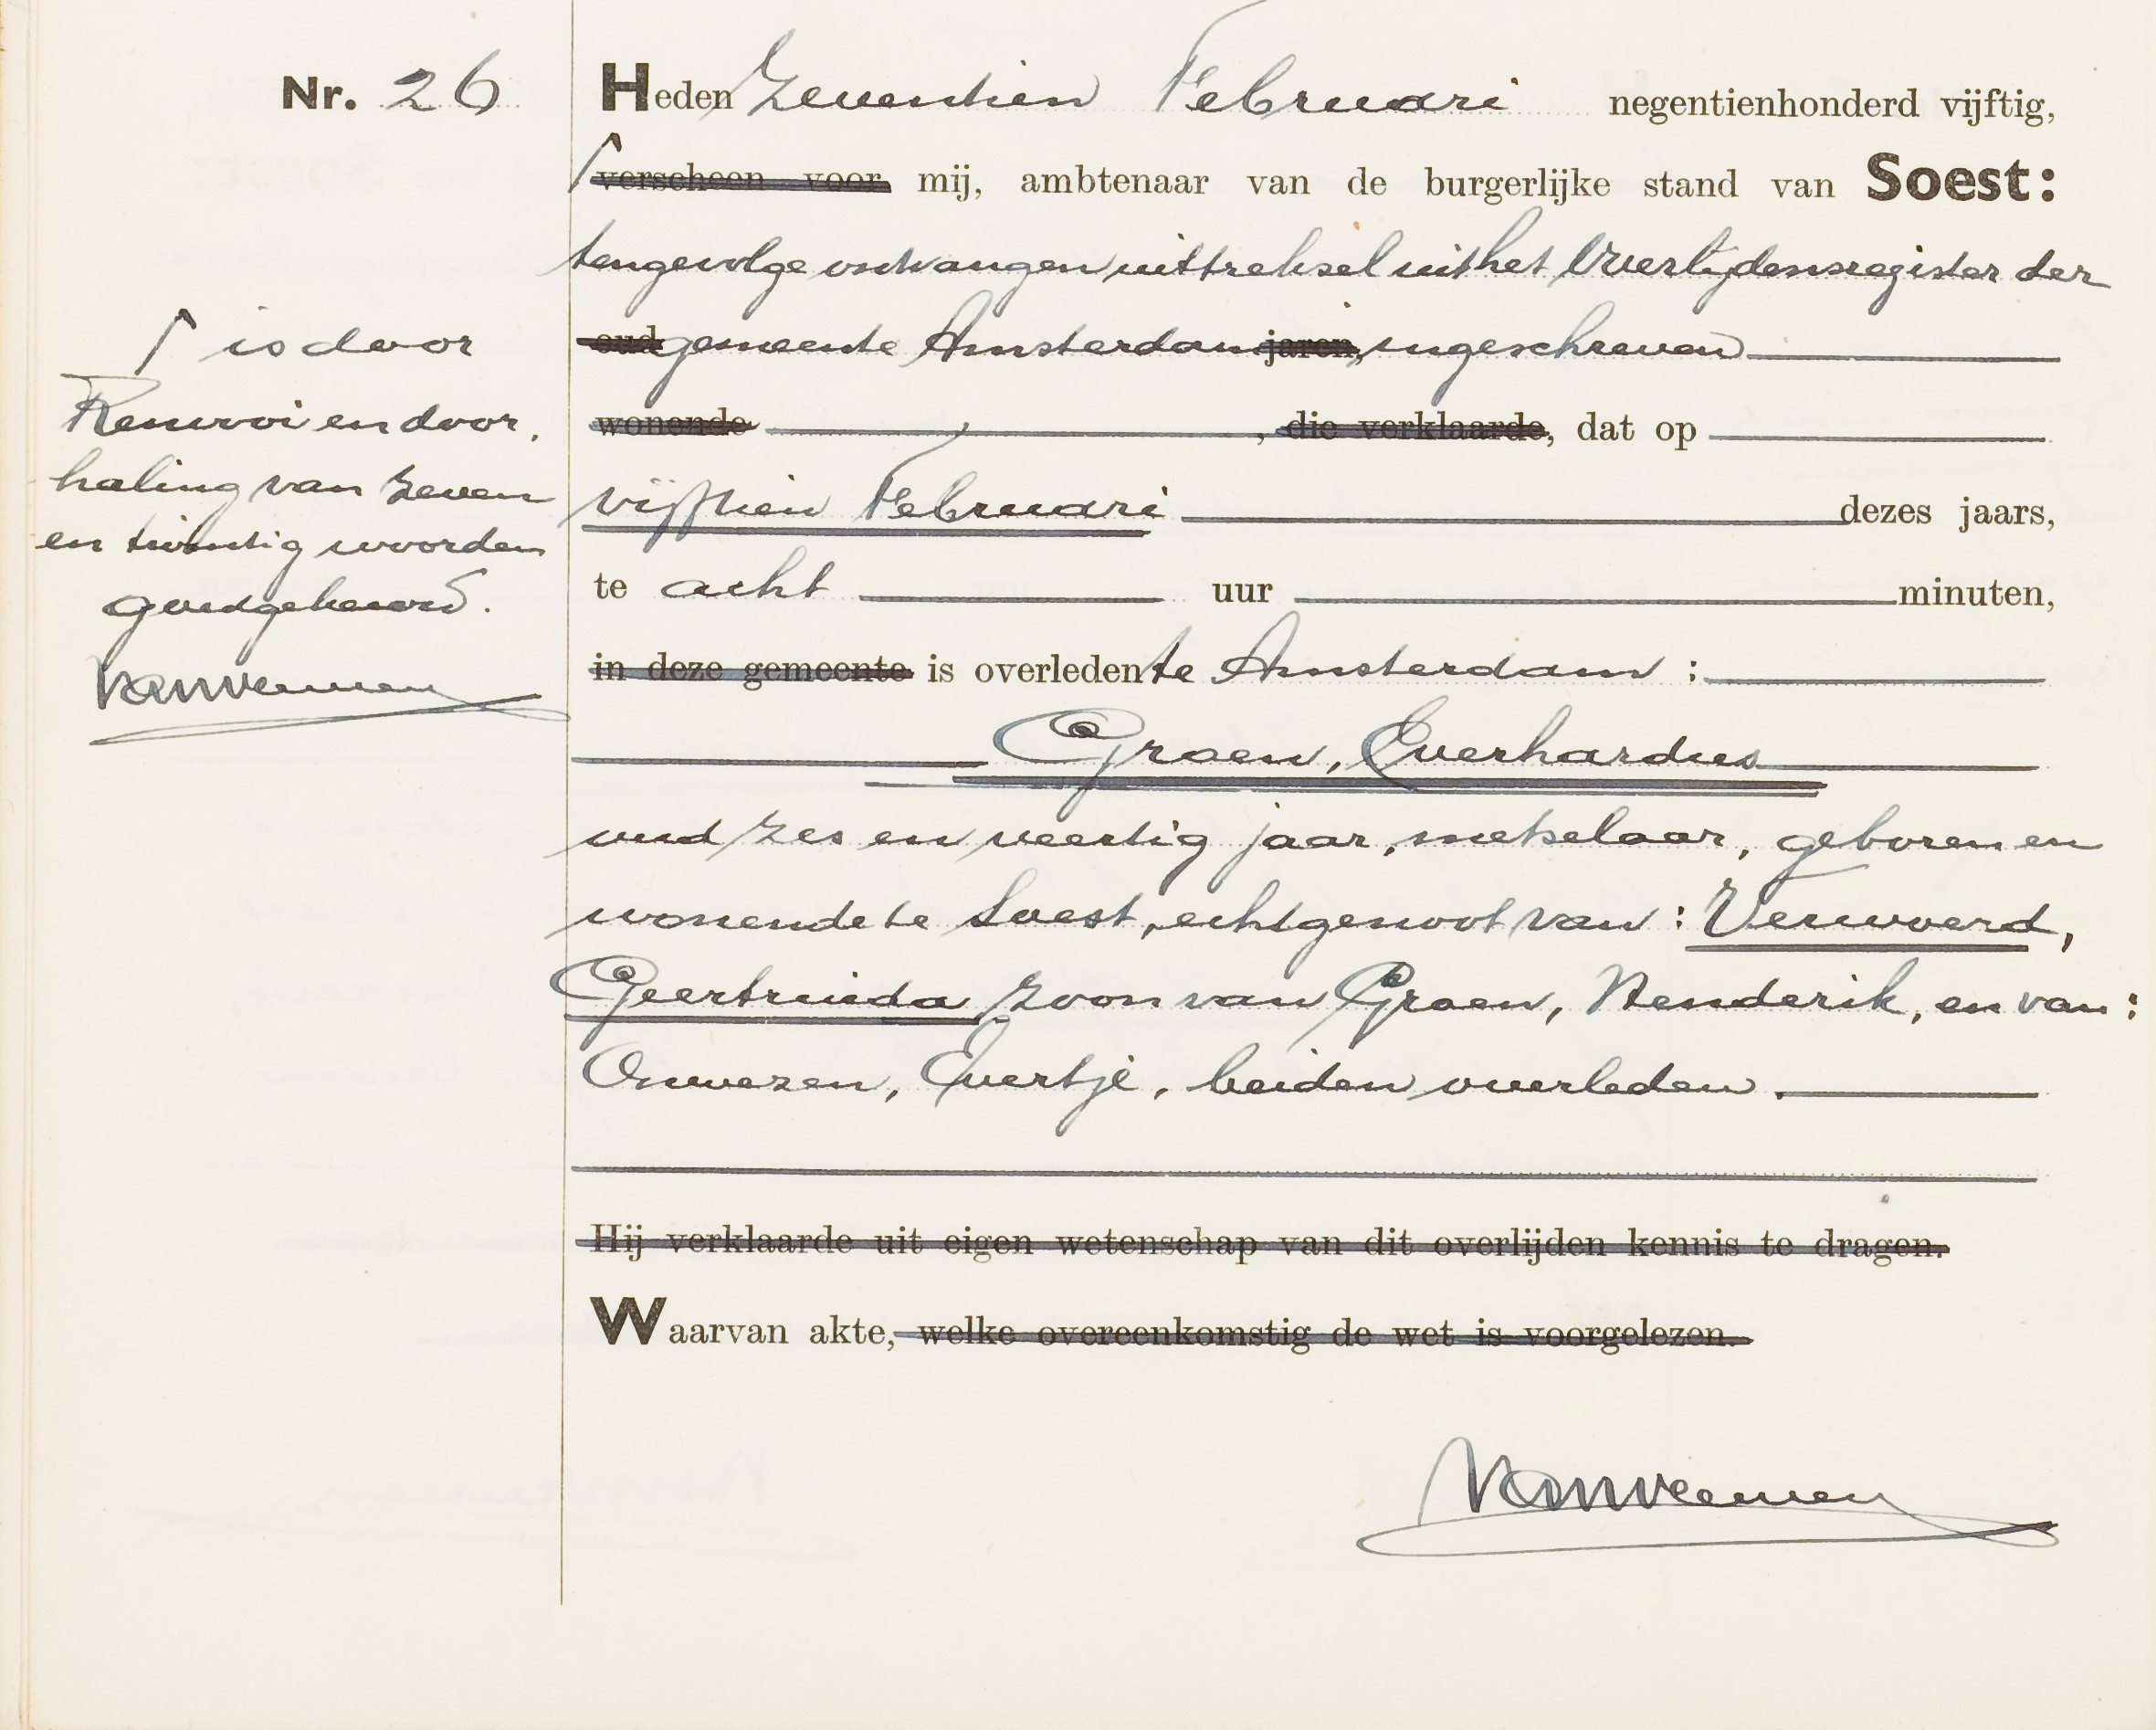 Nr. 26
Heden zeventien Februari negentienhonderd vijftig,
⌈ verscheen voor mij, ambtenaar van de burgerlijke stand van Soest:
tengevolge ontvangen uittreksel uit het Overlijdensregister der
oud gemeente Amsterdam jaren, ingeschreven
wonende , die verklaarde, dat op
vijftien Februari dezes jaars,
te acht uur minuten,
in deze gemeente is overleden te Amsterdam :
Groen, Everhardus
oud zes en veertig jaar, metselaar, geboren en
wonende te Soest, echtgenoot van : Verwoerd,
Geertruida zoon van Groen, Henderik, en van :
Onwezen, Evertje, beiden overleden.
Hij verklaarde uit eigen wetenschap van dit overlijden kennis te dragen.
Waarvan akte, welke overeenkomstig de wet is voorgelezen.
⌈ is door
Renvooi en door,
haling van zeven
en twintig woorden
goedgekeurd.